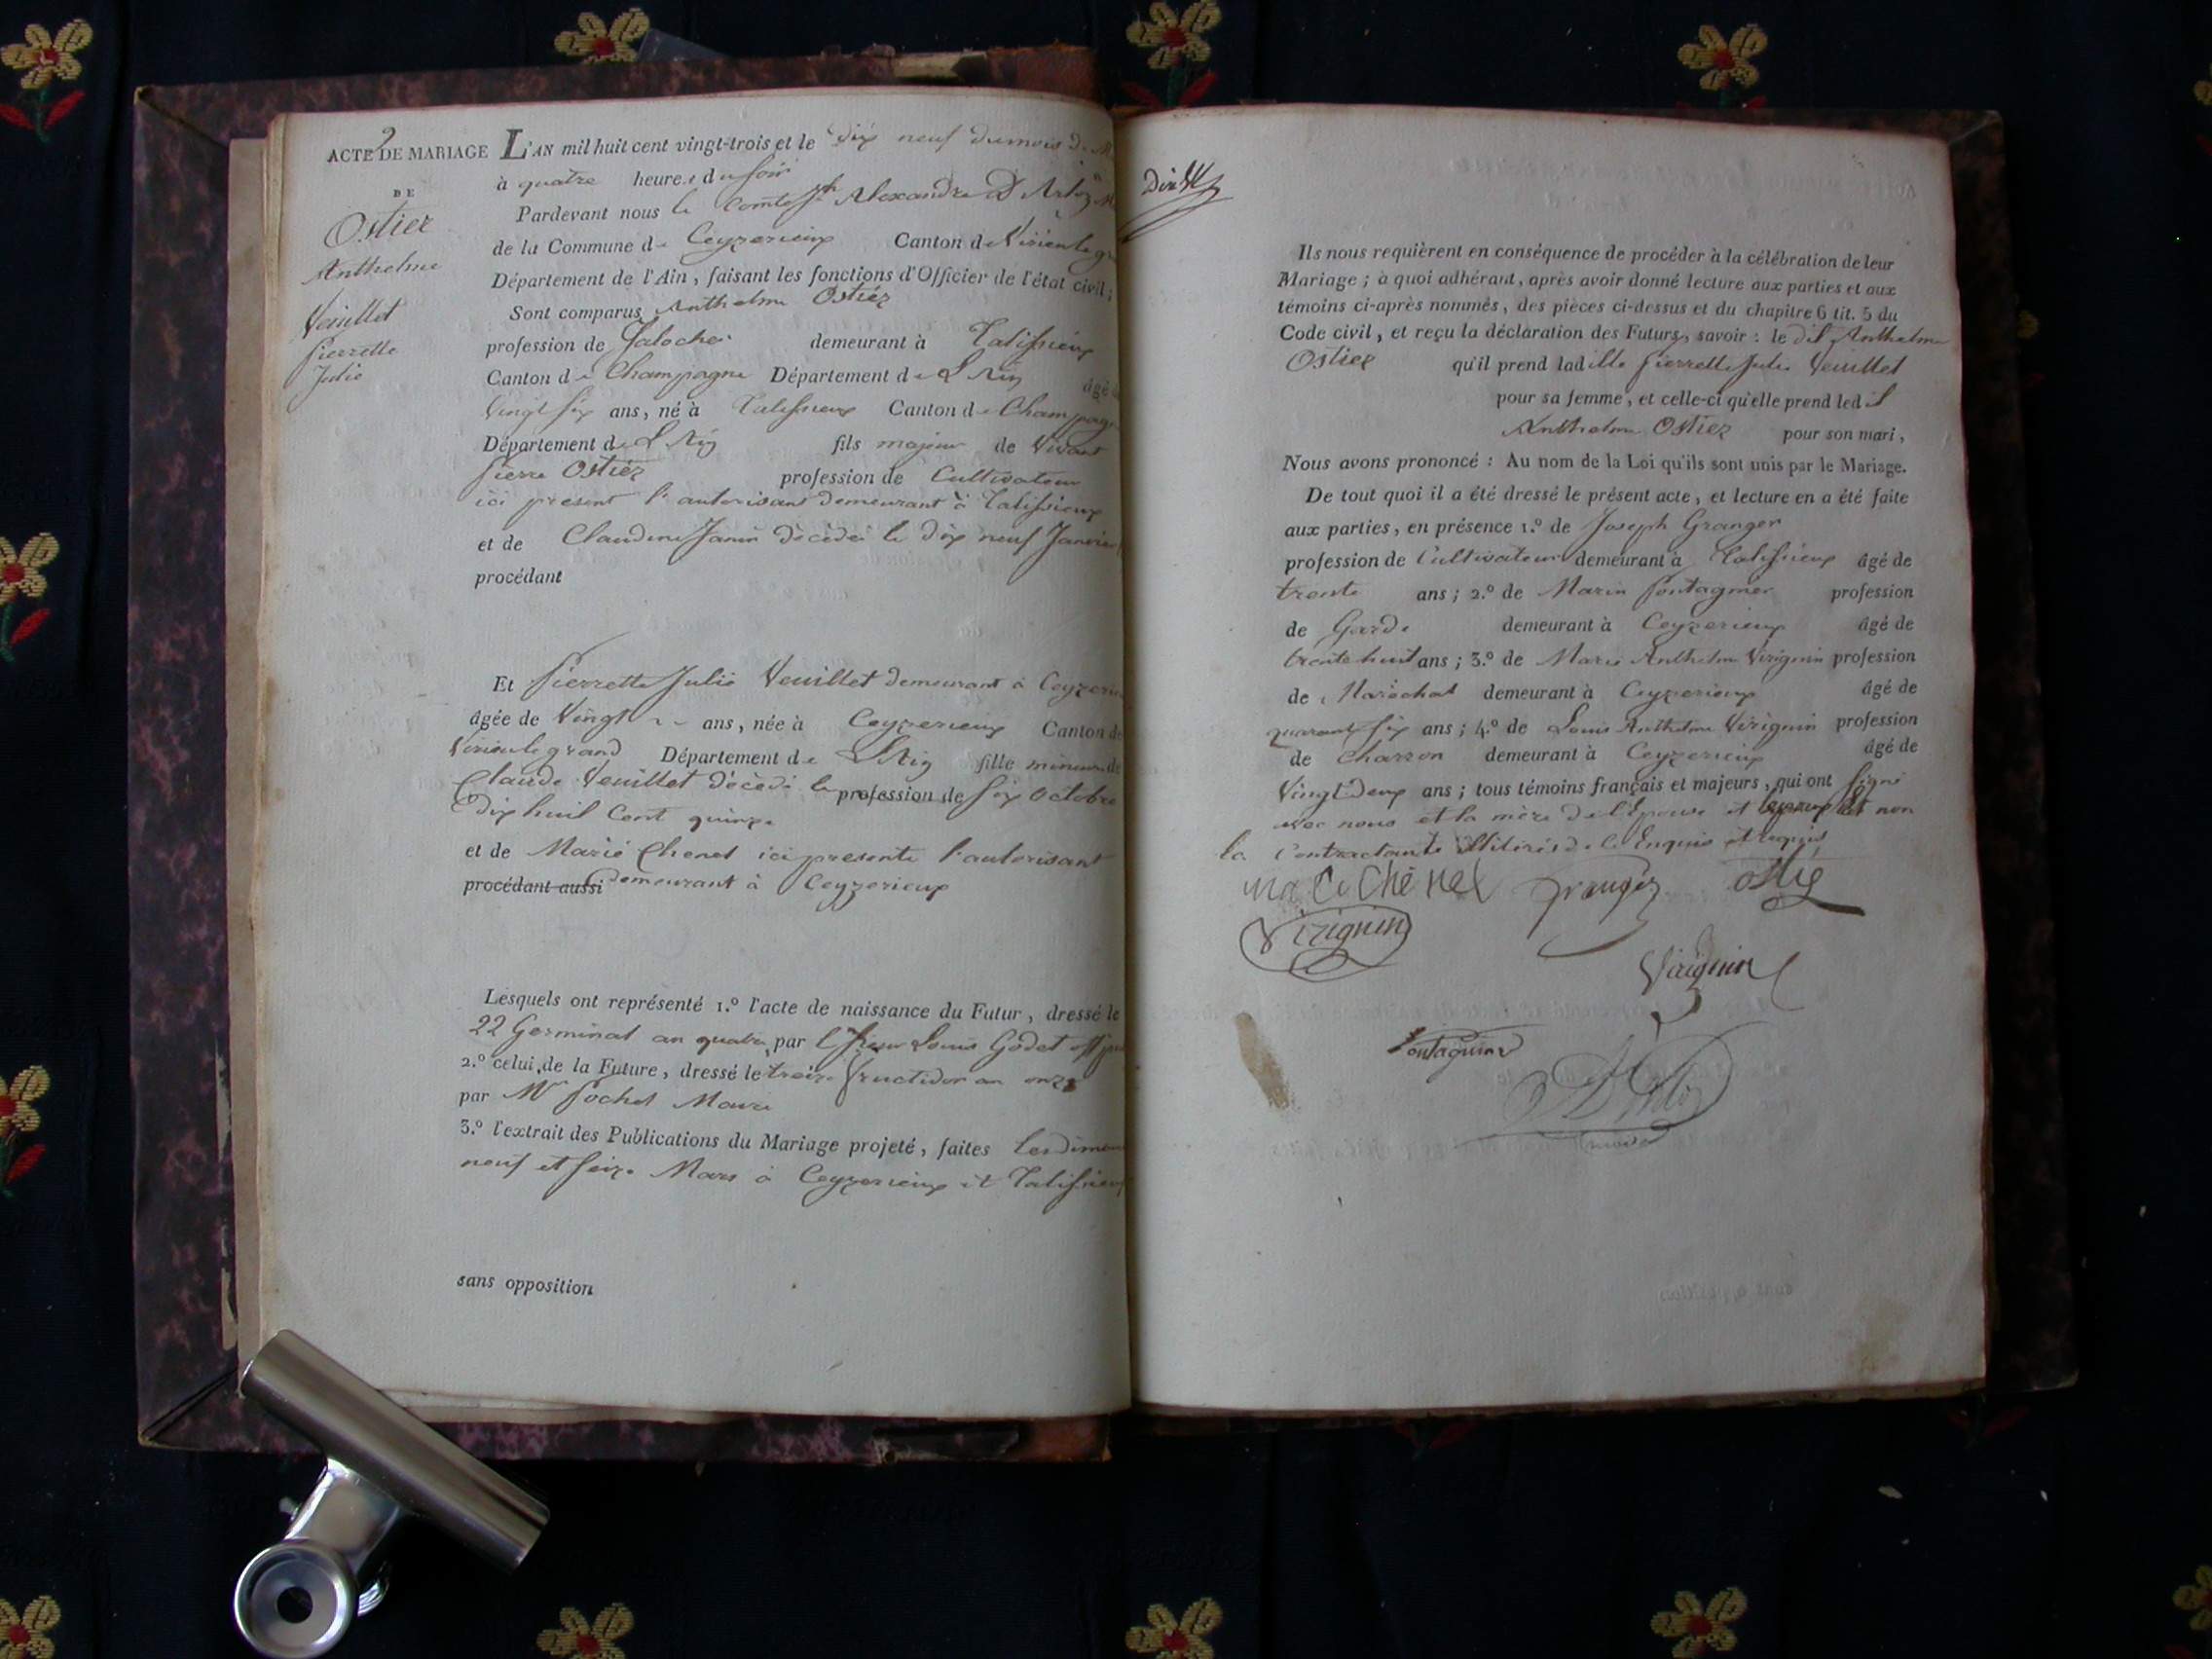 2
ACTE DE MARIAGE
DE
Ostier
Anthelme
Veuillet
Pierrette
Julie
L'AN mil huit cent vingt-trois et le dix neuf du mois de
à quatre heures du soir
Pardevant nous le Comte Jh Alexandre D Arloz
de la Commune de Ceyzerieux Canton de Virieu le gr
Département de l'Ain, faisant les fonctions d'Officier de l'état civil;
Sont comparus Anthelme Ostier
profession de demeurant à Talissieux
Canton de Champagne Département de L'Ain âgé de
Vingt six ans, né à Talissieux Canton de Champagn
Département de L'Ain fils majeur de Vivant
Pierre Ostier profession de Cultivateur
ici present l'autorisant demeurant à Talissieux
et de Claudine Janin décédée le dix neuf Janvier
procédant
Et Pierrette Julie Veuillet demeurant à Ceyzerieu
âgée de Vingt ans, née à Ceyzerieux Canton de
Virieu le grand Département de L'Ain fille mineure de
Claude Veuillet décédé le profession de six Octobre
Dix huit Cent quinze
et de Marie Chenet ici presente l'autorisant
procédant aussi demeurant à Ceyzerieux
Lesquels ont représenté 1.º l'acte de naissance du Futur, dressé le
22 Germinal an quatre par le sieur Louis Godet off pu
2.º celui de la Future, dressé le treize fructidor an onze
par Mr Pochet Maire
3.º l'extrait des Publications du Mariage projeté, faites les diman
neuf et seize Mars à Ceyzerieux et Talissieux
sans opposition
Ils nous requièrent en conséquence de procéder à la célébration de leur
Mariage; à quoi adhérant, après avoir donné lecture aux parties et aux
témoins ci-après nommés, des pièces ci-dessus et du chapitre 6 tit. 5 du
Code civil, et reçu la déclaration des Futurs, savoir: le dit Anthelme
Ostier qu'il prend ladille Pierrette Julie Veuillet
pour sa femme, et celle-ci qu'elle prend led it
Anthelme Ostier pour son mari,
Nous avons prononcé: Au nom de la Loi qu'ils sont unis par le Mariage.
De tout quoi il a été dressé le présent acte, et lecture en a été faite
aux parties, en présence 1.º de Joseph Granger
profession de Cultivateur demeurant à Talissieux âgé de
trente ans; 2.º de Marin Pontagnier profession
de Garde demeurant à Ceyzerieux âgé de
trente huit ans; 3.º de Marie Anthelme Virignin profession
de Maréchal demeurant à Ceyzerieux âgé de
quarante six ans; 4.º de Louis Anthelme Virignin profession
de Charron demeurant à Ceyzerieux âgé de
Vingt deux ans; tous témoins français et majeurs, qui ont signé
avec nous et la mère de l'Epouse et non
la Contractante illitérée de ce Enquis et requis
Chenel Granger Ostie
Virignin
Virignin
Pontagnier
D'Arloz
maire